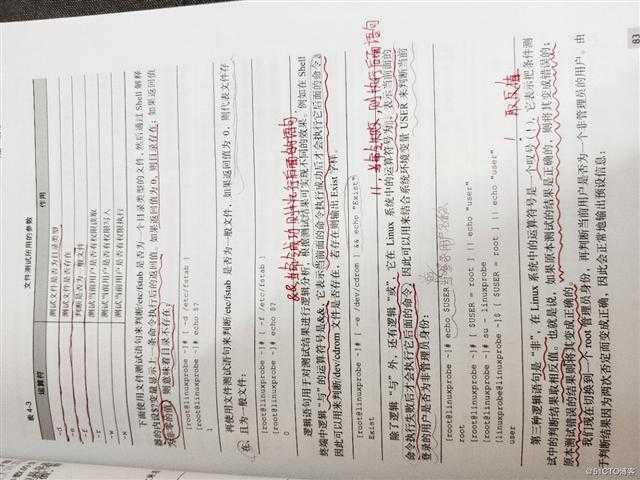 83
表 4-3 文件测试所用的参数
运算符 作用
-d 测试文件是否为目录类型
-e 测试文件是否存在
-f 判断是否为一般文件
-r 测试当前用户是否有权限读取
-w 测试当前用户是否有权限写入
-x 测试当前用户是否有权限执行
下面使用文件测试语句来判断/etc/fstab 是否为一个目录类型的文件，然后通过 Shell 解释
器的内设$?变量显示上一条命令执行后的返回值。如果返回值为 0，则目录存在；如果返回值
为非零的值，则意味着目录不存在：
[root@linuxprobe ~]# [ -d /etc/fstab ]
[root@linuxprobe ~]# echo $?
1
再使用文件测试语句来判断/etc/fstab 是否为一般文件，如果返回值为 0，则代表文件存
在，且为一般文件：
[root@linuxprobe ~]# [ -f /etc/fstab ]
[root@linuxprobe ~]# echo $?
0
&& 当前命令成功 则执行后面的语句
逻辑语句用于对测试结果进行逻辑分析，根据测试结果可实现不同的效果。例如在 Shell
终端中逻辑“与”的运算符号是&&，它表示当前面的命令执行成功后才会执行它后面的命令，
因此可以用来判断/dev/cdrom 文件是否存在，若存在则输出 Exist 字样。
[root@linuxprobe ~]# [ -e /dev/cdrom ] && echo "Exist"
Exist
|| 当命令失败，则执行后面语句
除了逻辑“与”外，还有逻辑“或”，它在 Linux 系统中的运算符号为||，表示当前面的
命令执行失败后才会执行它后面的命令，因此可以用来结合系统环境变量 USER 来判断当前
登录的用户是否为非管理员身份：
[root@linuxprobe ~]# echo $USER
root
[root@linuxprobe ~]# [ $USER = root ] || echo "user"
[root@linuxprobe ~]# su - linuxprobe
[linuxprobe@linuxprobe ~]$ [ $USER = root ] || echo "user"
user
! 取反值
第三种逻辑语句是“非”，在 Linux 系统中的运算符号是一个叹号（!），它表示把条件测
试中的判断结果取相反值。也就是说，如果原本测试的结果是正确的，则将其变成错误的；
原本测试错误的结果则将其变成正确的。
我们现在切换到一个 root 管理员身份，再判断当前用户是否为一个非管理员的用户。由
于判断结果因为两次否定而变成正确，因此会正常地输出预设信息：
@51CTO博客